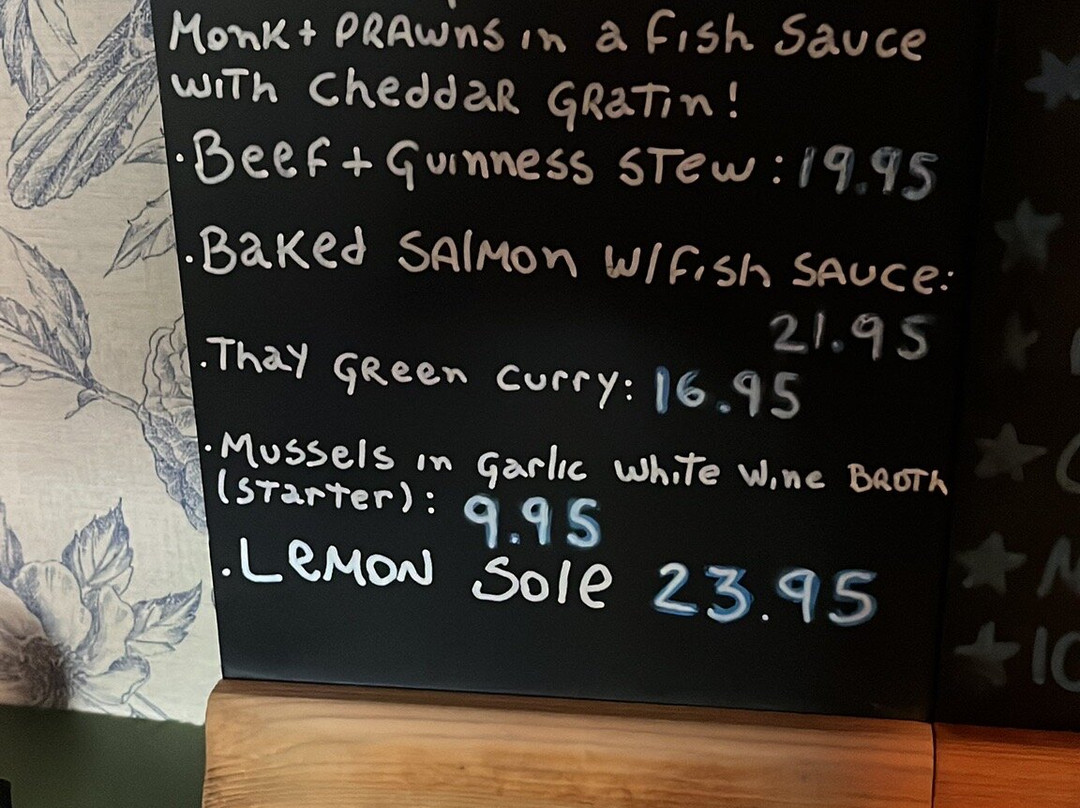 Monk + PRAwns in a fish Sauce
with Cheddar Gratin!
· Beef + Guinness Stew: 19.95
· Baked Salmon w/fish Sauce:
21.95
· Thay Green Curry: 16.95
· Mussels in Garlic white wine Broth
(Starter): 9.95
· Lemon Sole 23.95